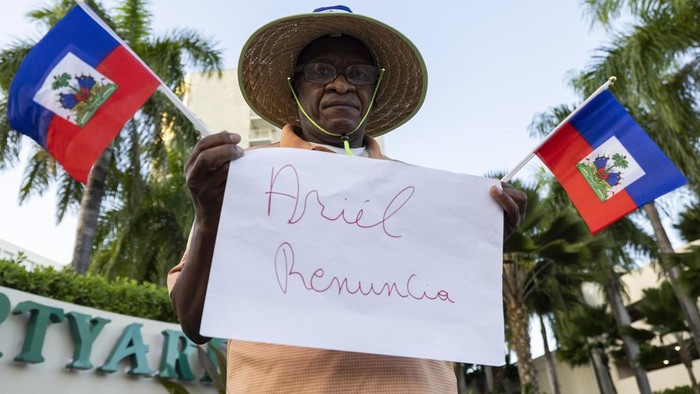 Ariél
Renuncia
RTYARD